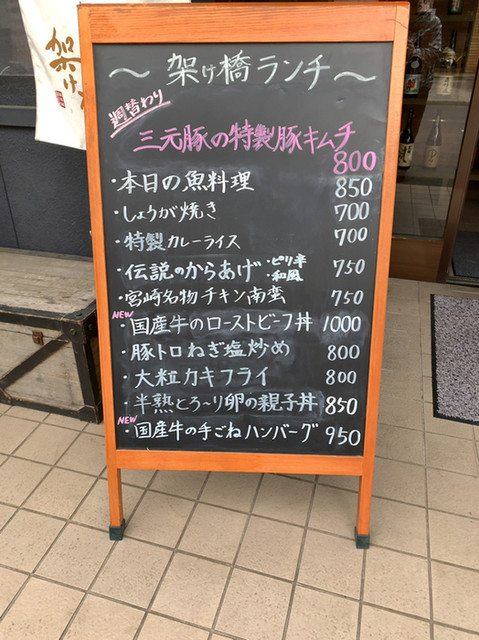 架け
～ 架け橋ランチ ～
週替わり
三元豚の特製豚キムチ
800
・本日の魚料理 850
・しょうが焼き 700
・特製カレーライス 700
・伝説のからあげ ・ピリ辛 ・和風 750
・宮崎名物チキン南蛮 750
NEW
・国産牛のローストビーフ丼 1000
・豚トロねぎ塩炒め 800
・大粒カキフライ 800
・半熟とろ～り卵の親子丼 850
NEW
・国産牛の手ごねハンバーグ 950